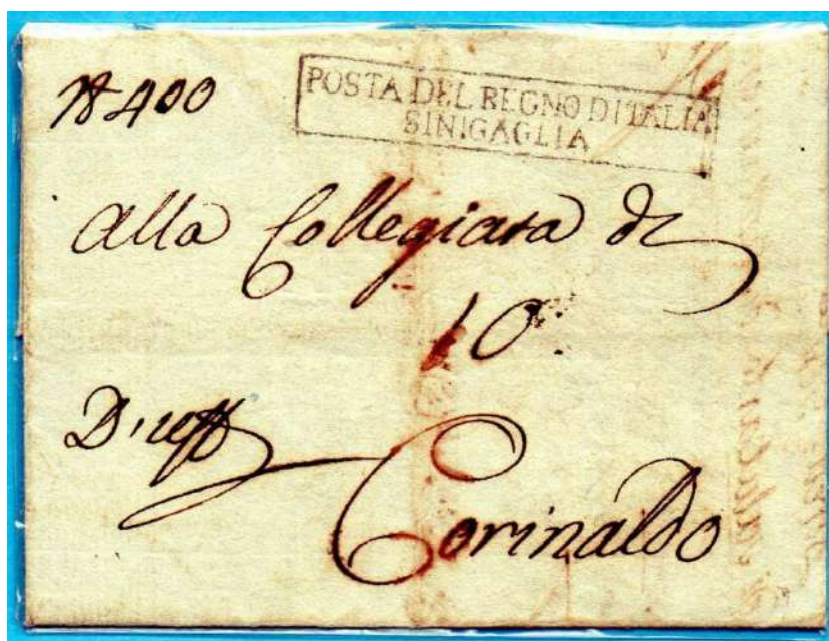 N 400
POSTA DEL REGNO D'ITALIA
SINIGAGLIA
Alla Collegiata di
10
Corinaldo